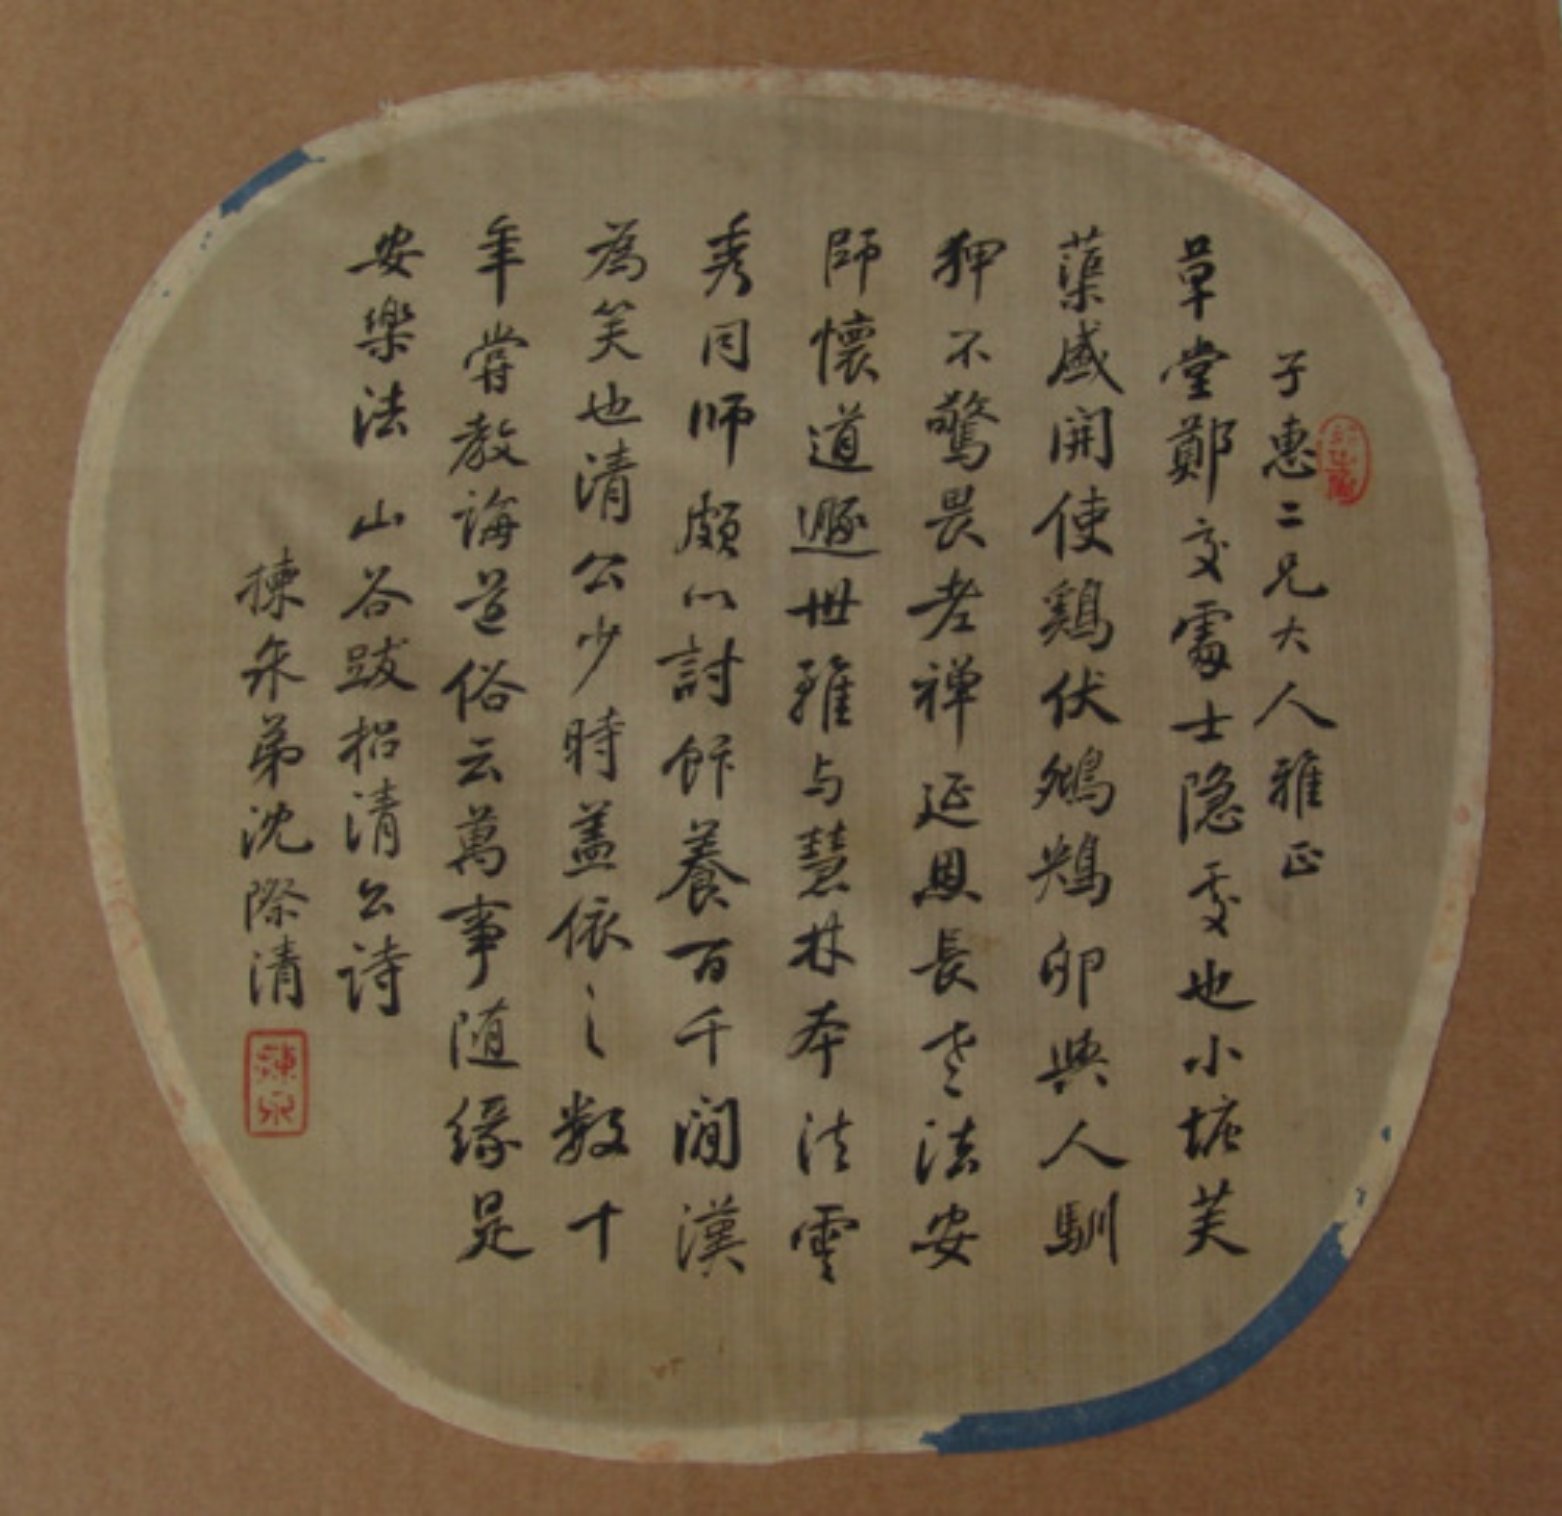 子惠二兄大人雅正
草堂鄭交處士隐處也小塘芙
蕖盛開使鷄伏鵁鶄卵與人馴
狎不驚畏老禅延恩長老法安
師懷道遯世雖与慧林本法雲
秀同師頗以討飰養百千閒漢
為笑也清公少時葢依之數十
年嘗教誨道俗云萬事随緣是
安樂法 山谷跋招清公詩
泉弟沈際清